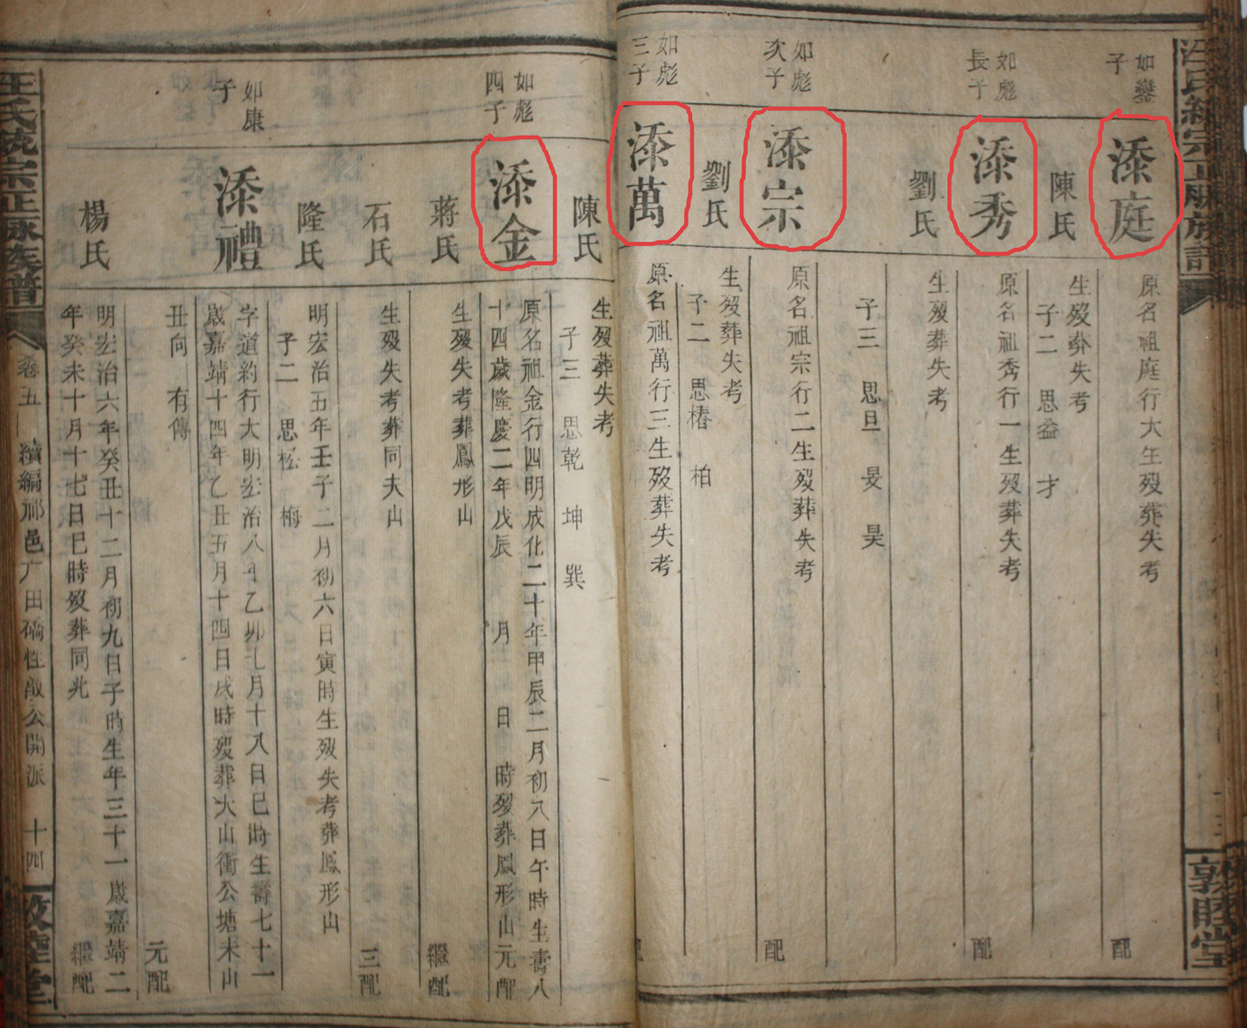 汪氏統宗正脉族譜
敦睦堂
如鑾
子
添庭
原名祖庭行大生歿葬失考
配
陳氏
生歿葬失考
子二 思益 才
如彪
長子
添秀
原名祖秀行一生歿葬失考
配
劉氏
生歿葬失考
子三 思旦 旻 昊
如彪
次子
添宗
原名祖宗行二生歿葬失考
配
劉氏
生歿葬失考
子二 思椿 柏
如彪
三子
添萬
原名祖萬行三生歿葬失考
陳氏
生歿葬失考
子三 思乾 坤 巽
如彪
四子
添金
原名祖金行四明成化二十年甲辰二月初八日午時生壽八
十四歲隆慶二年戊辰 月 日 時歿葬鳳形山元配
蔣氏
生歿失考葬鳳形山
繼配
石氏
生歿失考葬同夫山
三配
隆氏
明宏治五年壬子二月初六日寅時生歿失考葬鳳形山
子二 思松 梅
如康
子
添禮
字道約行大明宏治八年乙卯七月十八日巳時生壽七十一
歲嘉靖十四年乙丑五月十四日戌時歿葬火山衝公塘未山
丑向 有傳
元配
楊氏
明宏治六年癸丑十二月初九日子時生年三十一歲嘉靖二
年癸未十月十七日巳時歿葬同兆
繼配
汪氏統宗正脉族譜
卷五 續編祁邑 田 性敵公開派 十四
敦睦堂